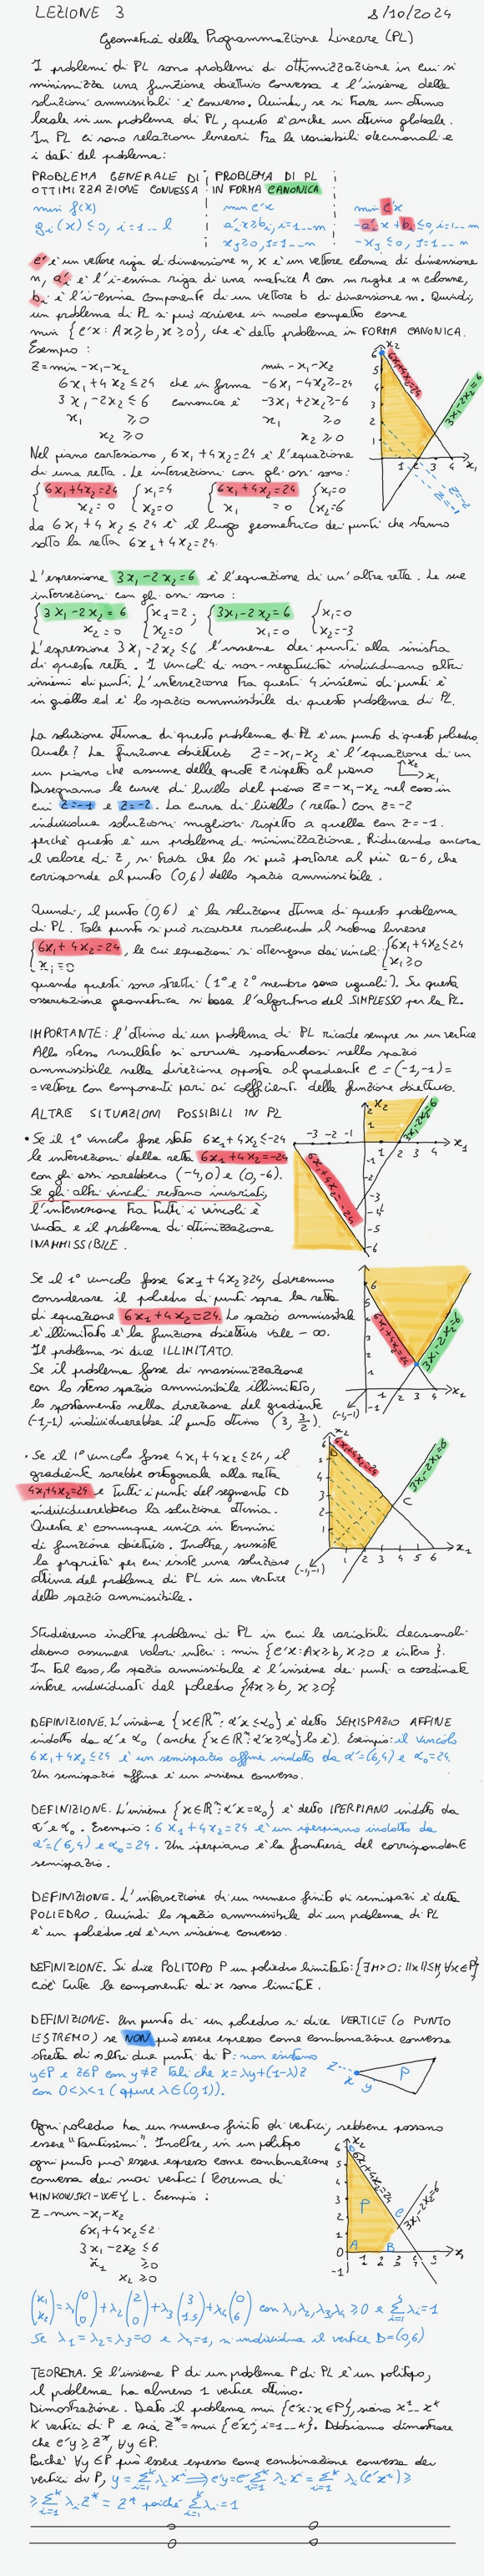 LEZIONE 3 8/10/2024
Geometria della Programmazione Lineare (PL)
I problemi di PL sono problemi di ottimizzazione in cui si
minimizza una funzione obiettivo convessa e l'insieme delle
soluzioni ammissibili è convesso. Quindi, se si trova un ottimo
locale in un problema di PL, questo è anche un ottimo globale.
In PL ci sono relazioni lineari tra le variabili decisionali e
i dati del problema:
PROBLEMA GENERALE DI OTTIMIZZAZIONE CONVESSA
min f(x)
gi(x) ≤ 0, i=1...l
PROBLEMA DI PL IN FORMA CANONICA
min c'x
a'i x ≥ bi, i=1...m
xj ≥ 0, J=1...n
min c'x
-a'i x + bi ≤ 0, i=1...m
-xj ≤ 0, J=1...n
c' è un vettore riga di dimensione n, x è un vettore colonna di dimensione
n, a'i è l'i-esima riga di una matrice A con m righe e n colonne,
bi è l'i-esima componente di un vettore b di dimensione m. Quindi,
un problema di PL si può scrivere in modo compatto come
min {c'x: Ax≥b, x≥0}, che è detto problema in FORMA CANONICA.
Esempio:
Z=min -x1-x2 min -x1-x2
6x1+4x2≤24 che in forma -6x1-4x2≥-24
3x1-2x2≤6 canonica è -3x1+2x2≥-6
x1 ≥0 x1 ≥0
x2≥0 x2≥0
Nel piano cartesiano, 6x1+4x2=24 è l'equazione
di una retta. Le intersezioni con gli assi sono:
{6x1+4x2=24 {x1=4 {6x1+4x2=24 {x1=0
x2=0 x2=0 x1=0 x2=6
da 6x1+4x2≤24 è il luogo geometrico dei punti che stanno
sotto la retta 6x1+4x2=24.
L'espressione 3x1-2x2=6 è l'equazione di un'altra retta. Le sue
intersezioni con gli assi sono:
{3x1-2x2=6 {x1=2; {3x1-2x2=6 {x1=0
x2=0 x2=0 x1=0 x2=-3
L'espressione 3x1-2x2≤6 l'insieme dei punti alla sinistra
di questa retta. I vincoli di non-negatività individuano altri
insiemi di punti. L'intersezione tra questi 4 insiemi di punti è
in giallo ed è lo spazio ammissibile di questo problema di PL.
La soluzione ottima di questo problema di PL è un punto di questo poliedro.
Quale? La funzione obiettivo Z=-x1-x2 è l'equazione di un
un piano che assume delle quote z rispetto al piano x2 x1
Disegnamo le curve di livello del piano Z=-x1-x2 nel caso in
cui Z=-1 e Z=-2. La curva di livello (retta) con Z=-2
individua soluzioni migliori rispetto a quella con Z=-1.
perché questo è un problema di minimizzazione. Riducendo ancora
il valore di Z, si trova che lo si può portare al più a -6, che
corrisponde al punto (0,6) dello spazio ammissibile.
Quindi, il punto (0,6) è la soluzione ottima di questo problema
di PL. Tale punto si può ricavare risolvendo il sistema lineare
{6x1+4x2=24, le cui equazioni si ottengono dai vincoli {6x1+4x2≤24
x1=0 x1≥0
quando questi sono stretti (1° e 2° membro sono uguali). Su questa
osservazione geometrica si basa l'algoritmo del SIMPLESSO per la PL.
IMPORTANTE: l'ottimo di un problema di PL ricade sempre su un vertice
Allo stesso risultato si arriva spostandosi nello spazio
ammissibile nella direzione opposta al gradiente c=(-1,-1)=
=vettore con componenti pari ai coefficienti della funzione obiettivo.
ALTRE SITUAZIONI POSSIBILI IN PL
• Se il 1° vincolo fosse stato 6x1+4x2≤-24
le intersezioni della retta 6x1+4x2=-24
con gli assi sarebbero (-4,0) e (0,-6).
Se gli altri vincoli restano invariati,
l'intersezione tra tutti i vincoli è
vuota e il problema di ottimizzazione
INAMMISSIBILE.
Se il 1° vincolo fosse 6x1+4x2≥24, dovremmo
considerare il poliedro di punti sopra la retta
di equazione 6x1+4x2=24. Lo spazio ammissibile
è illimitato e la funzione obiettivo vale -∞.
Il problema si dice ILLIMITATO.
Se il problema fosse di massimizzazione
con lo stesso spazio ammissibile illimitato,
lo spostamento nella direzione del gradiente
(-1,-1) individuerebbe il punto ottimo (3, 3/2).
• Se il 1° vincolo fosse 4x1+4x2≤24, il
gradiente sarebbe ortogonale alla retta
4x1+4x2=24 e tutti i punti del segmento CD
individuerebbero la soluzione ottima.
Questa è comunque unica in termini
di funzione obiettivo. Inoltre, sussiste
la proprietà per cui esiste una soluzione
ottima del problema di PL in un vertice
dello spazio ammissibile.
Studieremo inoltre problemi di PL in cui le variabili decisionali
devono assumere valori interi: min {c'x: Ax≥b, x≥0 e intero}.
In tal caso, lo spazio ammissibile è l'insieme dei punti a coordinate
intere individuati dal poliedro {Ax≥b, x≥0}
DEFINIZIONE. L'insieme {x∈ℝⁿ: α'x≤α0} è detto SEMISPAZIO AFFINE
indotto da α' e α0 (anche {x∈ℝⁿ: α'x≥α0} lo è). Esempio: il vincolo
6x1+4x2≤24 è un semispazio affine indotto da α'=(6,4) e α0=24.
Un semispazio affine è un insieme convesso.
DEFINIZIONE. L'insieme {x∈ℝⁿ: α'x=α0} è detto IPERPIANO indotto da
α' e α0. Esempio: 6x1+4x2=24 è un iperpiano indotto da
α'=(6,4) e α0=24. Un iperpiano è la frontiera del corrispondente
semispazio.
DEFINIZIONE. L'intersezione di un numero finito di semispazi è detta
POLIEDRO. Quindi lo spazio ammissibile di un problema di PL
è un poliedro ed è un insieme convesso.
DEFINIZIONE. Si dice POLITOPO P un poliedro limitato: {∃M>0: ||x||≤M, ∀x∈P}
cioè tutte le componenti di x sono limitate.
DEFINIZIONE. Un punto di un poliedro si dice VERTICE (o PUNTO
ESTREMO) se NON può essere espresso come combinazione convessa
stretta di altri due punti di P: non esistono
y∈P e z∈P con y≠z tali che x=λy+(1-λ)z
con 0<λ<1 (oppure λ∈(0,1)).
Ogni poliedro ha un numero finito di vertici, sebbene possano
essere "tantissimi". Inoltre, in un politopo
ogni punto può essere espresso come combinazione
convessa dei suoi vertici (Teorema di
MINKOWSKI-WEYL). Esempio:
Z=min -x1-x2
6x1+4x2≤2
3x1-2x2≤6
x1 ≥0
x2≥0
(x1 x2)=λ1(0 0)+λ2(2 0)+λ3(3 1.5)+λ4(0 6) con λ1,λ2,λ3,λ4≥0 e Σλi=1
Se λ1=λ2=λ3=0 e λ4=1, si individua il vertice D=(0,6)
TEOREMA. Se l'insieme P di un problema P di PL è un politopo,
il problema ha almeno 1 vertice ottimo.
Dimostrazione. Dato il problema min {c'x: x∈P}, siano x¹...xᴷ
K vertici di P e sia Z*=min{c'xⁱ, i=1...k}. Dobbiamo dimostrare
che c'y≥Z*, ∀y∈P.
Poiché ∀y∈P può essere espresso come combinazione convessa dei
vertici di P, y=Σλi xⁱ ⟹ c'y=c'Σλi xⁱ=Σλi(c'xⁱ)≥
≥Σλi Z*=Z* poiché Σλi=1